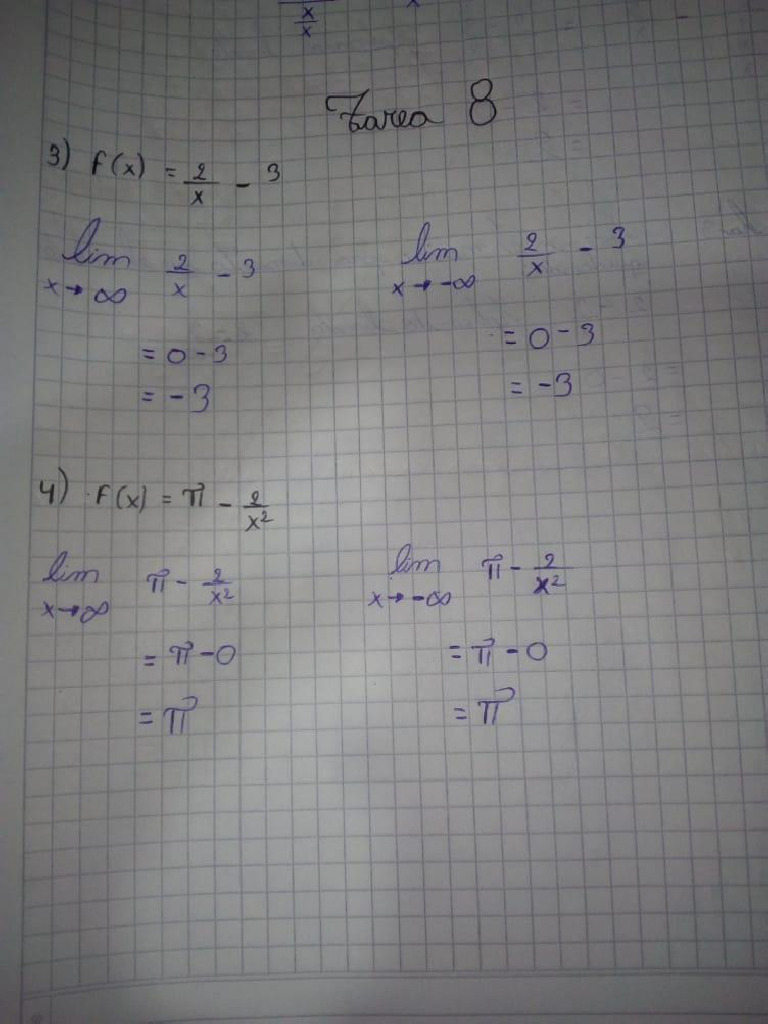 x/x x
Tarea 8
3) f(x) = 2/x - 3
lim x→∞ 2/x - 3
= 0 - 3
= -3
lim x→-∞ 2/x - 3
= 0 - 3
= -3
4) f(x) = π - 2/x²
lim x→∞ π - 2/x²
= π - 0
= π
lim x→-∞ π - 2/x²
= π - 0
= π